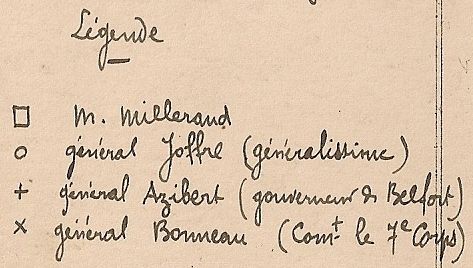 Légende
□ M. Millerand
○ général Joffre (généralissime)
+ général Azibert (gouverneur de Belfort)
× général Bonneau (Comt le 7e Corps)